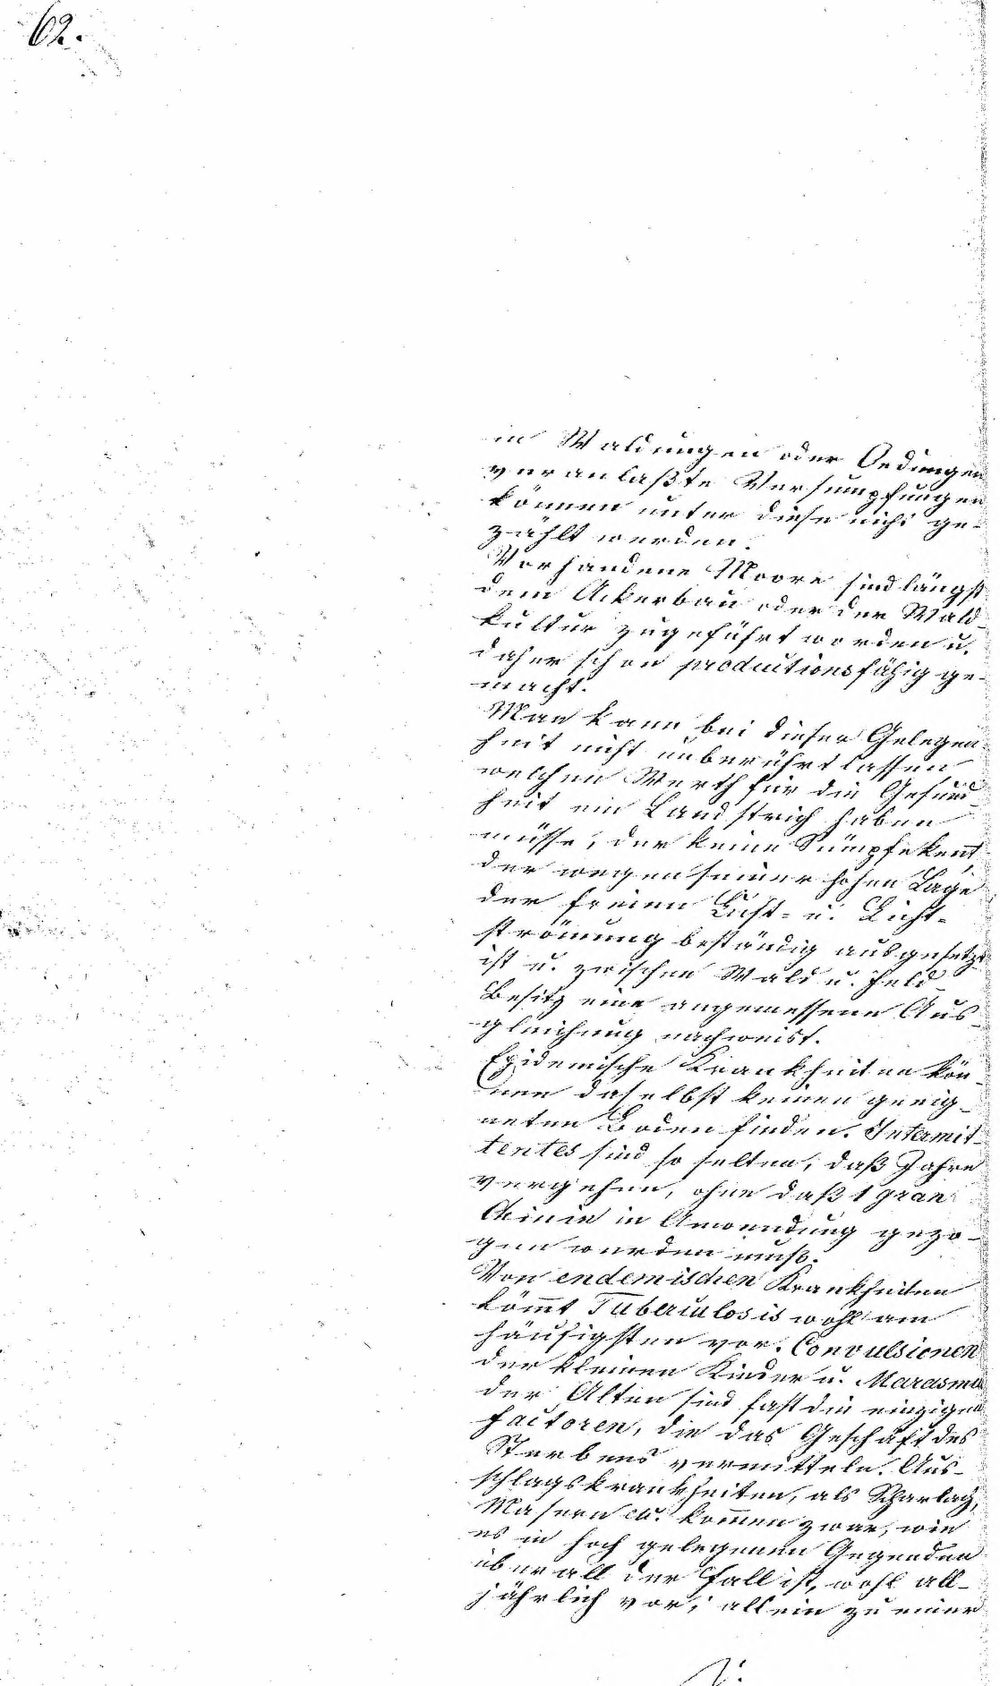 62.
in Waldungen oder Oedungen
veranlaßte Versumpfungen
können unter diese nicht ge-
zählt werden.
Vorhandene Moore sind längst
dem Ackerbau oder der Wald-
kultur zugeführt worden u.
daher schon productionsfähig ge-
macht.
Man kann bei dieser Gelegen-
heit nicht unberührt lassen
welchen Werth für die Gesund-
heit ein Landstrich haben
müsse, der keine Sümpfe kennt,
der wegen seiner hohen Lage
der freien Luft- u. Licht-
strömung beständig ausgesetzt
ist u. zwischen Wald u. Feld
Besitz eine angemessene Aus-
gleichung nachweist.
Epidemische Krankheiten kön-
nen daselbst keinen geeig-
neten Boden finden. Intermit-
tentes sind so selten, daß Jahre
vergehen, ohne daß 1 gran
Chinin in Anwendung gezo-
gen werden muß.
Von endemischen Krankheiten
kömmt Tuberculosis wohl am
häufigsten vor. Convulsionen
der kleinen Kinder u. Marasmus
der Alten sind fast die einzigen
Factoren, die das Geschäft des
Sterbens vermitteln. Aus-
schlagskrankheiten, als Scharlach,
Masern etc. kommen zwar, wie
es in hoch gelegenen Gegenden
überall der Fall ist, wohl all-
jährlich vor; allein zu einer